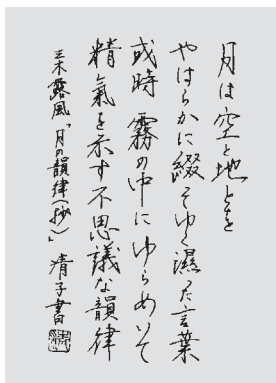 月は空と地とを
やはらかに綴てゆく濕った言葉
或時 霧の中にゆらめいて
精氣を示す不思議な韻律
三木露風「月の韻律(抄)」 清子書